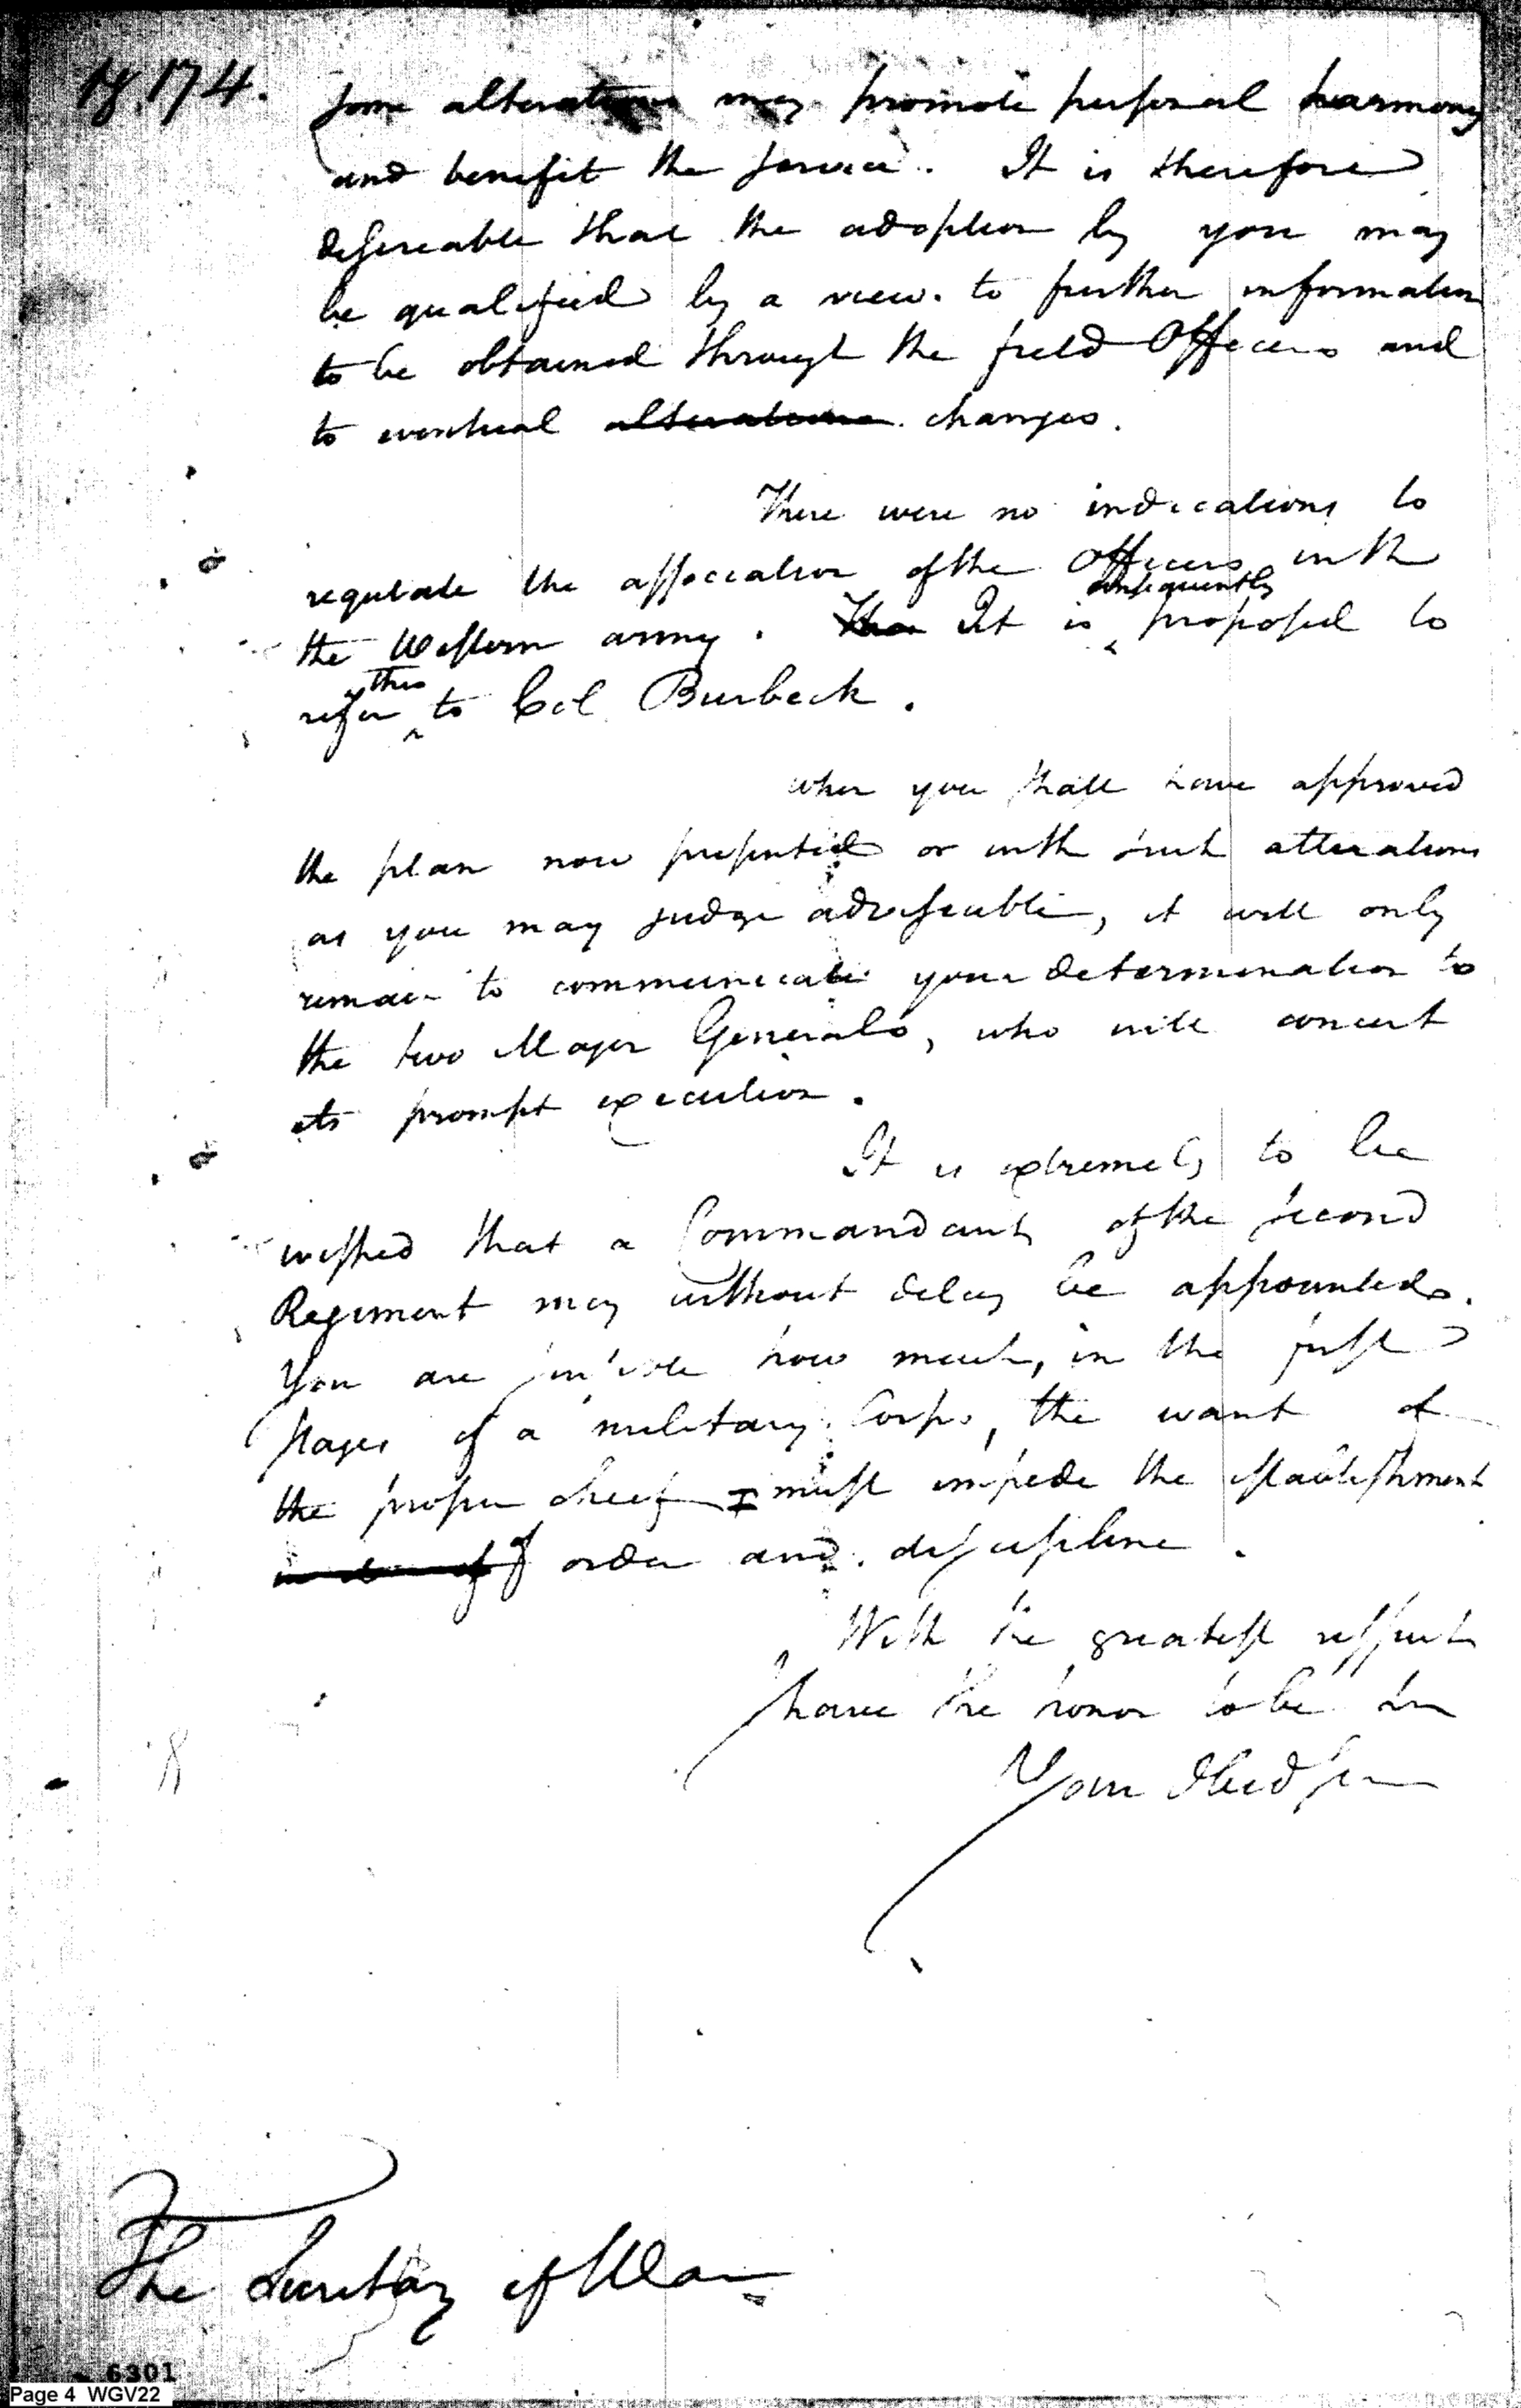 pg. 174.
some alterations may promote personal harmony
and benefit the service. It is therefore
desireable that the adoption by you may
be qualified by a view to further information
to be obtained through the field Officers and
to eventual alterations changes.
There were no indications to
regulate the association of the Officers with
consequently
the Western army. It is proposed to
this
refer to Col Burbeck.
when you shall have approved
the plan now presented or with such alterations
as you may judge adviseable, it will only
remain to communicate your determination to
the two Major Generals, who will concert
its prompt execution.
It is extremely to be
wished that a Commandant of the second
Regiment may without delay be appointed.
You are sensible how much, in the first
stages of a military Corps, the want of
the proper chief must impede the establishment
of order and discipline.
With the greatest respect
I have the honor to be Sir
Your Obed ser
The Secretary of War
6301
Page 4 WGV22